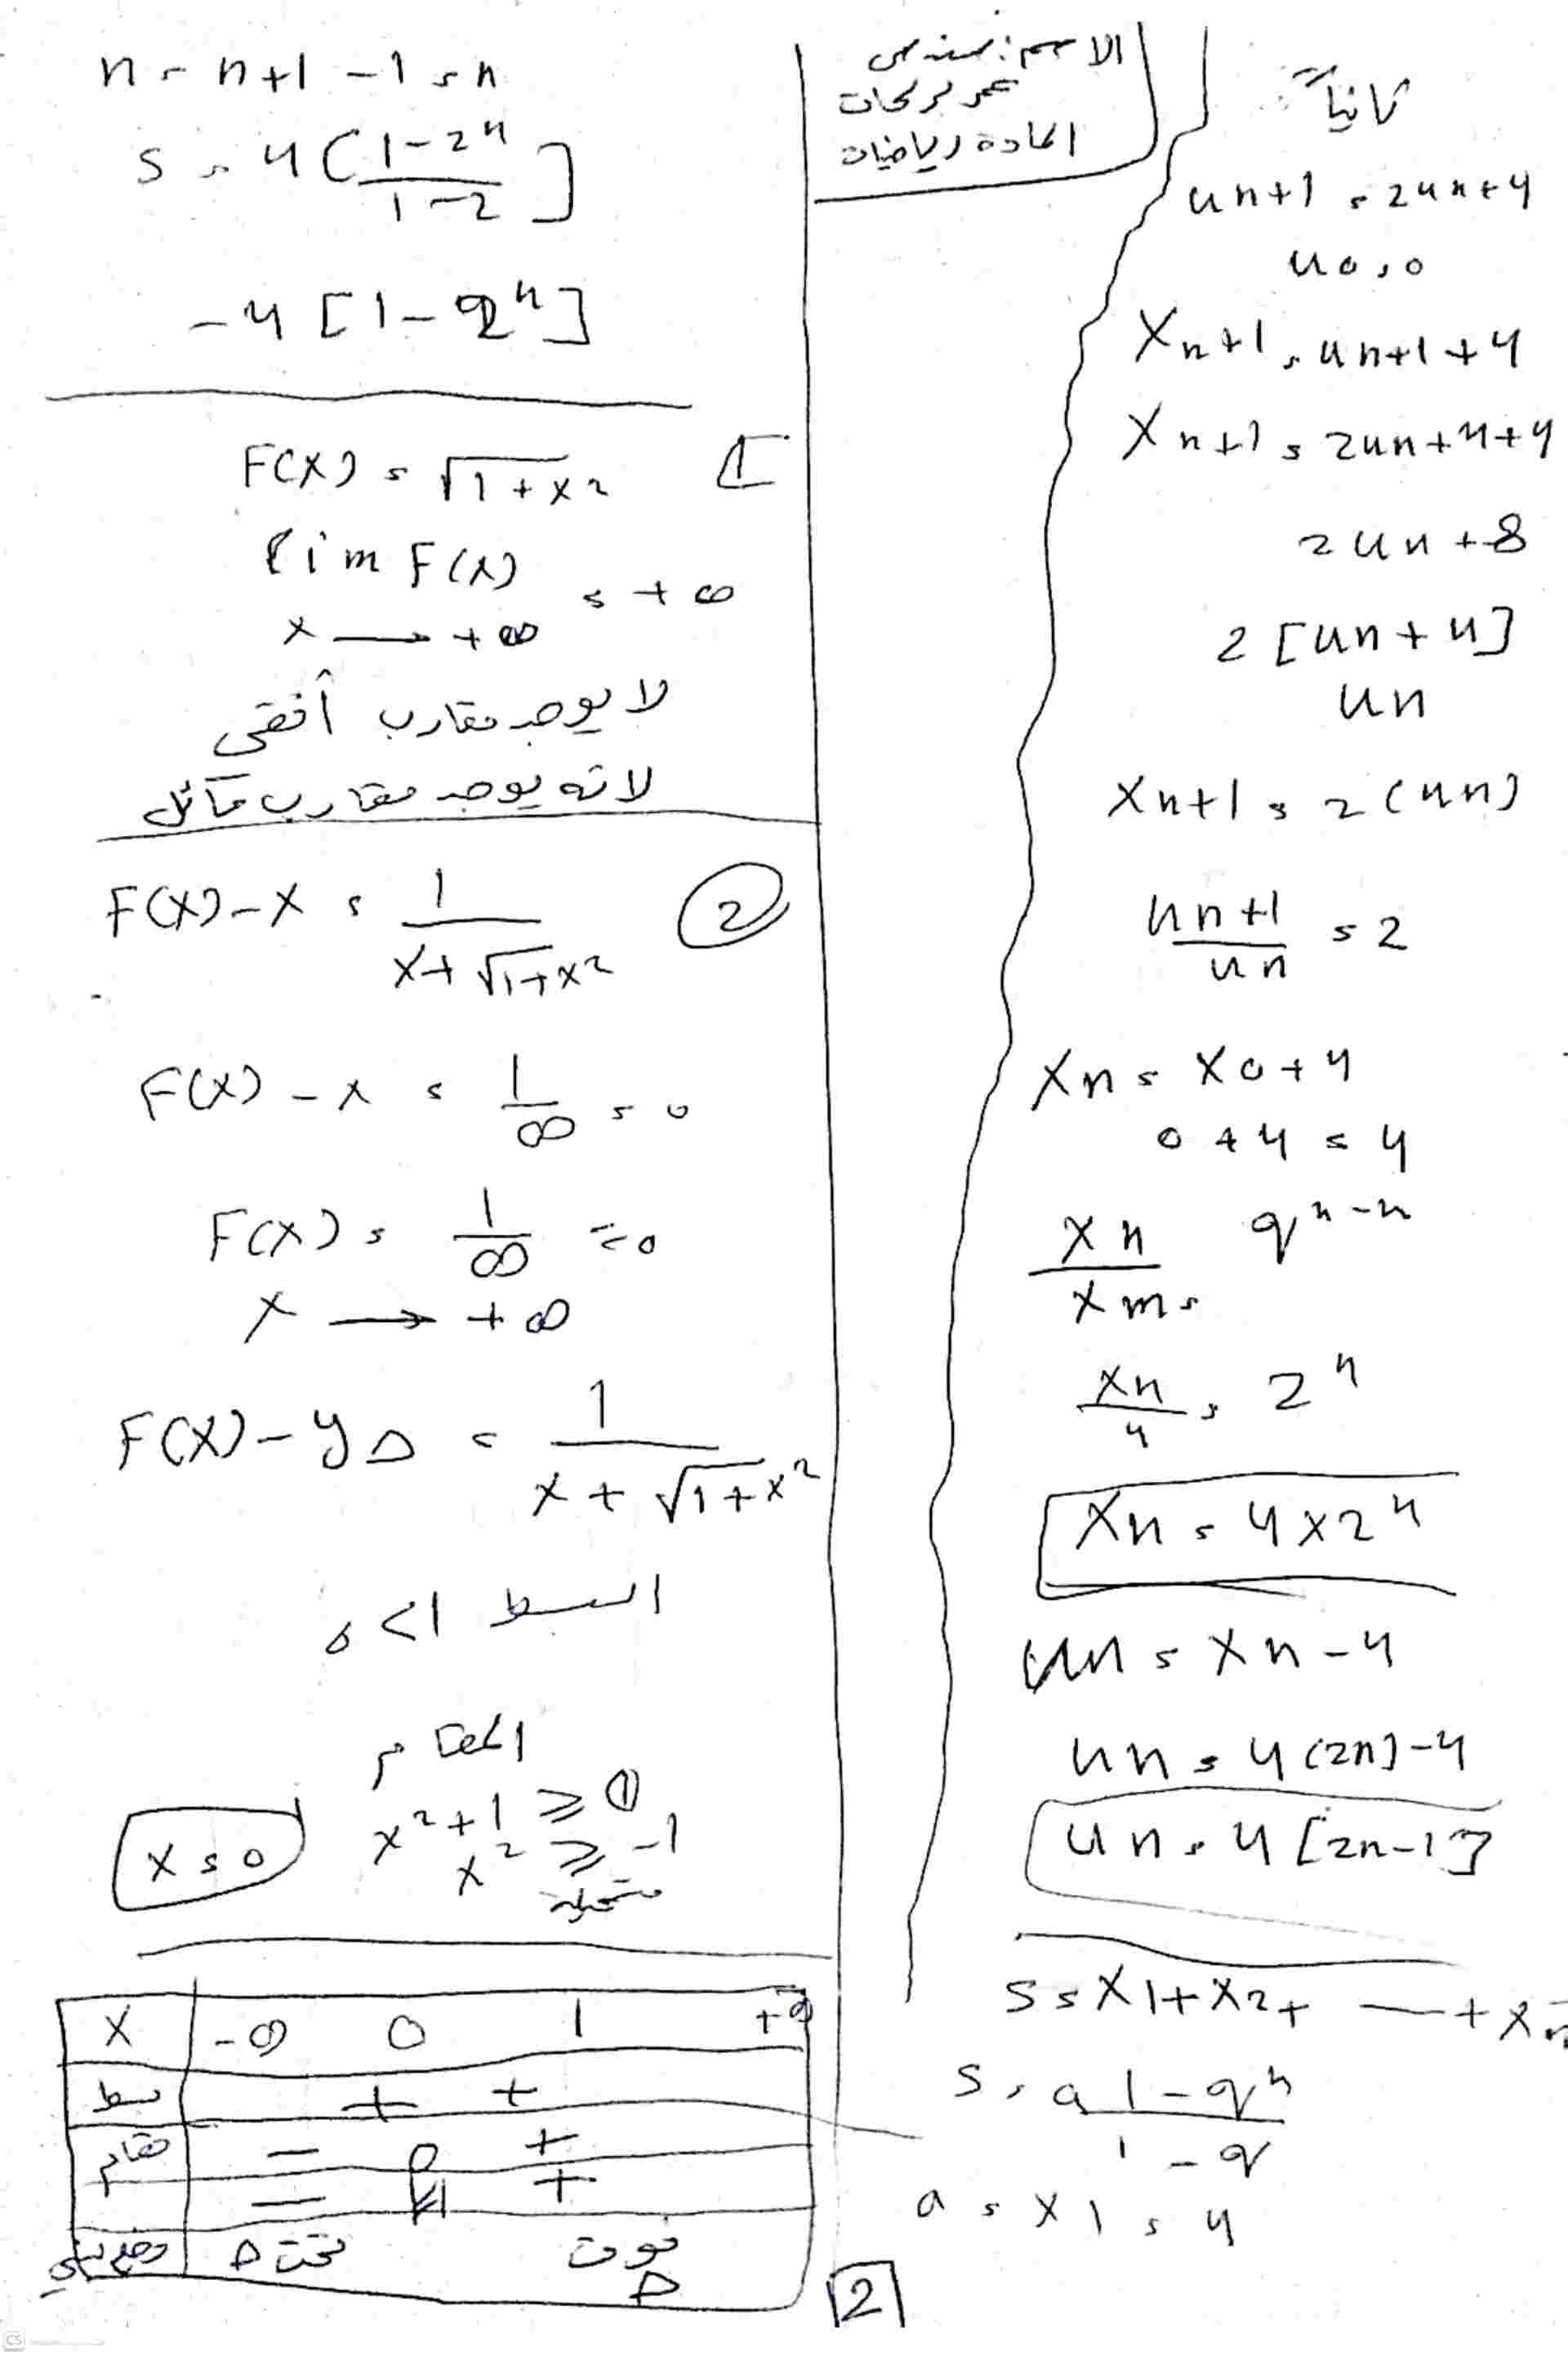 الاسم: سندس
المادة رياضيات
ثانياً
un+1 = 2un+4
u0 = 0
Xn+1 = un+1 + 4
Xn+1 = 2un+4+4
2un+8
2[un+4]
un
Xn+1 = 2(un)
un+1/un = 2
Xn = X0+4
0+4 = 4
Xn/Xm = q^n-n
Xn/4 = 2^n
Xn = 4×2^n
un = Xn-4
un = 4(2n)-4
un = 4[2n-1]
S = X1+X2+ — +Xn
S = a 1-q^n/1-q
a = X1 = 4
n = n+1-1 = n
S = 4[1-2^n/1-2]
-4[1-2^n]
1
F(X) = √1+x²
lim F(x) = +∞
x → +∞
لا يوجد مقارب أفقي
لانه يوجد مقارب مائل
2
F(X)-X = 1/x+√1+x²
F(X)-x = 1/∞ = 0
F(X) = 1/∞ = 0
x → +∞
F(X)-yΔ = 1/x+√1+x²
البسط 1>0
المقام
x²+1 ≥ 0
x² ≥ -1
مستحيلة
X = 0
X -∞ 0 1 +∞
بسط + +
مقام - 0 +
- || +
وضع نسبي تحت Δ فوق Δ
2
CS